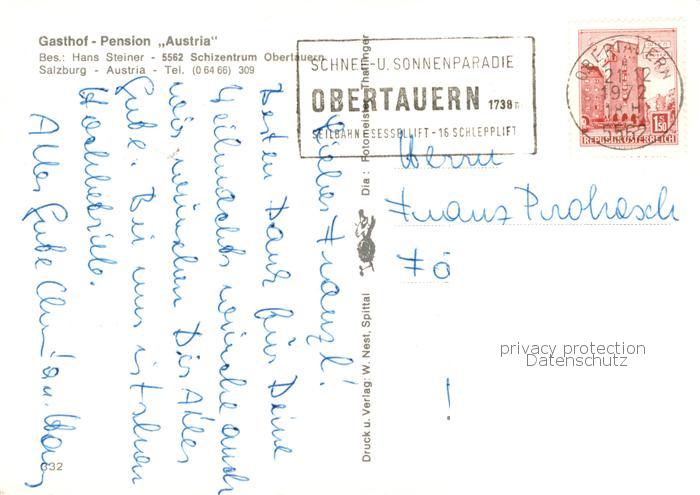 Gasthof - Pension „Austria“
Bes.: Hans Steiner - 5562 Schizentrum Obertauern
Salzburg - Austria - Tel. (0 64 66) 309
SCHNEE-U. SONNENPARADIE
OBERTAUERN 1738m
SEILBAHN SESSELLIFT - 16 SCHLEPPLIFT
OBERTAUERN
21.12
1972
18 H
5562
1.50
S
REPUBLIK ÖSTERREICH
Lieber Franzl!
Besten Dank für Deine
Weihnachtswünsche auch
wir wünschen Dir Alles
Gute. Bei uns ist schon
Hochbetrieb.
Alles Gute u. Hans
Herrn
Franz Prohasch
Fö
!
Druck u. Verlag: W. Nest, Spittal
Dia: Fotomeister
632
privacy protection
Datenschutz